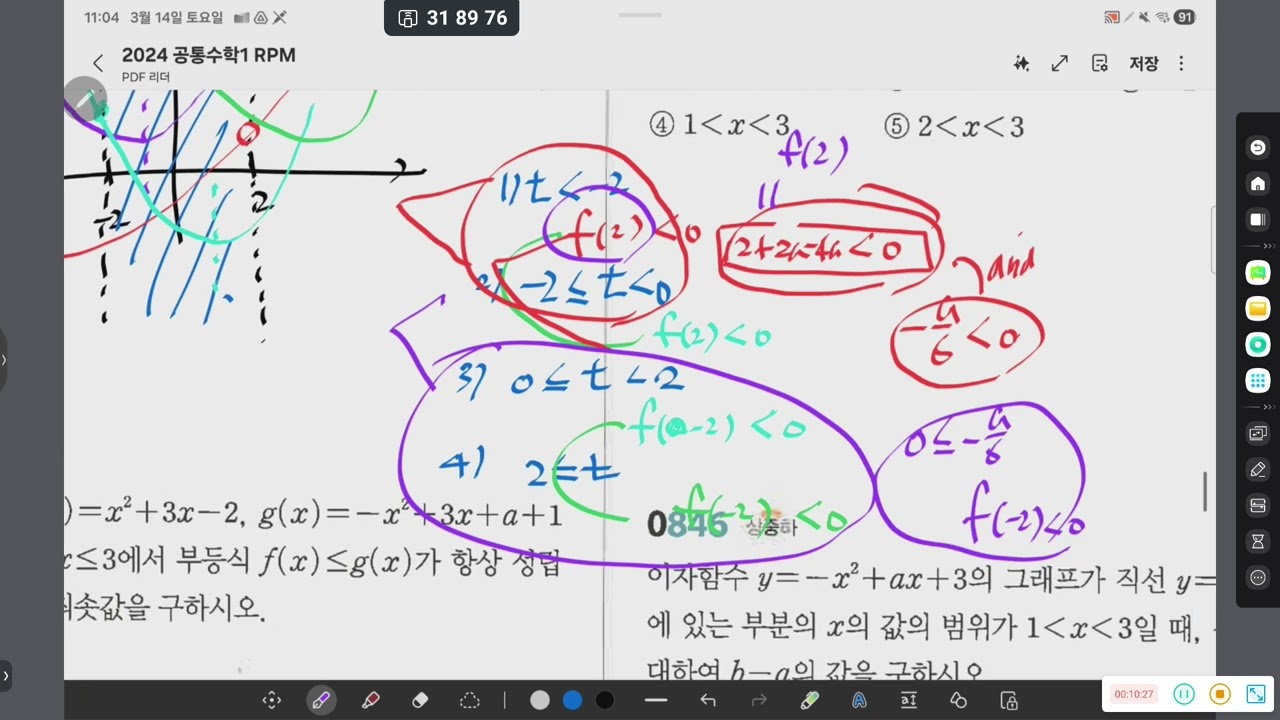 11:04 3월 14일 토요일
31 89 76
91
2024 공통수학1 RPM
PDF 리더
저장
④ 1<x<3
⑤ 2<x<3
f(2)
||
1) t<-2
f(2)<0
2+2a-4a<0
and
-a/6<0
-2
2
2) -2≤t<0
f(2)<0
3) 0≤t<2
f(-2)<0
4) 2≤t
f(-2)<0
0≤-a/6
f(-2)<0
)=x²+3x-2, g(x)=-x²+3x+a+1
x≤3에서 부등식 f(x)≤g(x)가 항상 성립
솟값을 구하시오.
0846 상중하
이차함수 y=-x²+ax+3의 그래프가 직선 y=
에 있는 부분의 x의 값의 범위가 1<x<3일 때,
대하여 b-a의 값을 구하시오
00:10:27